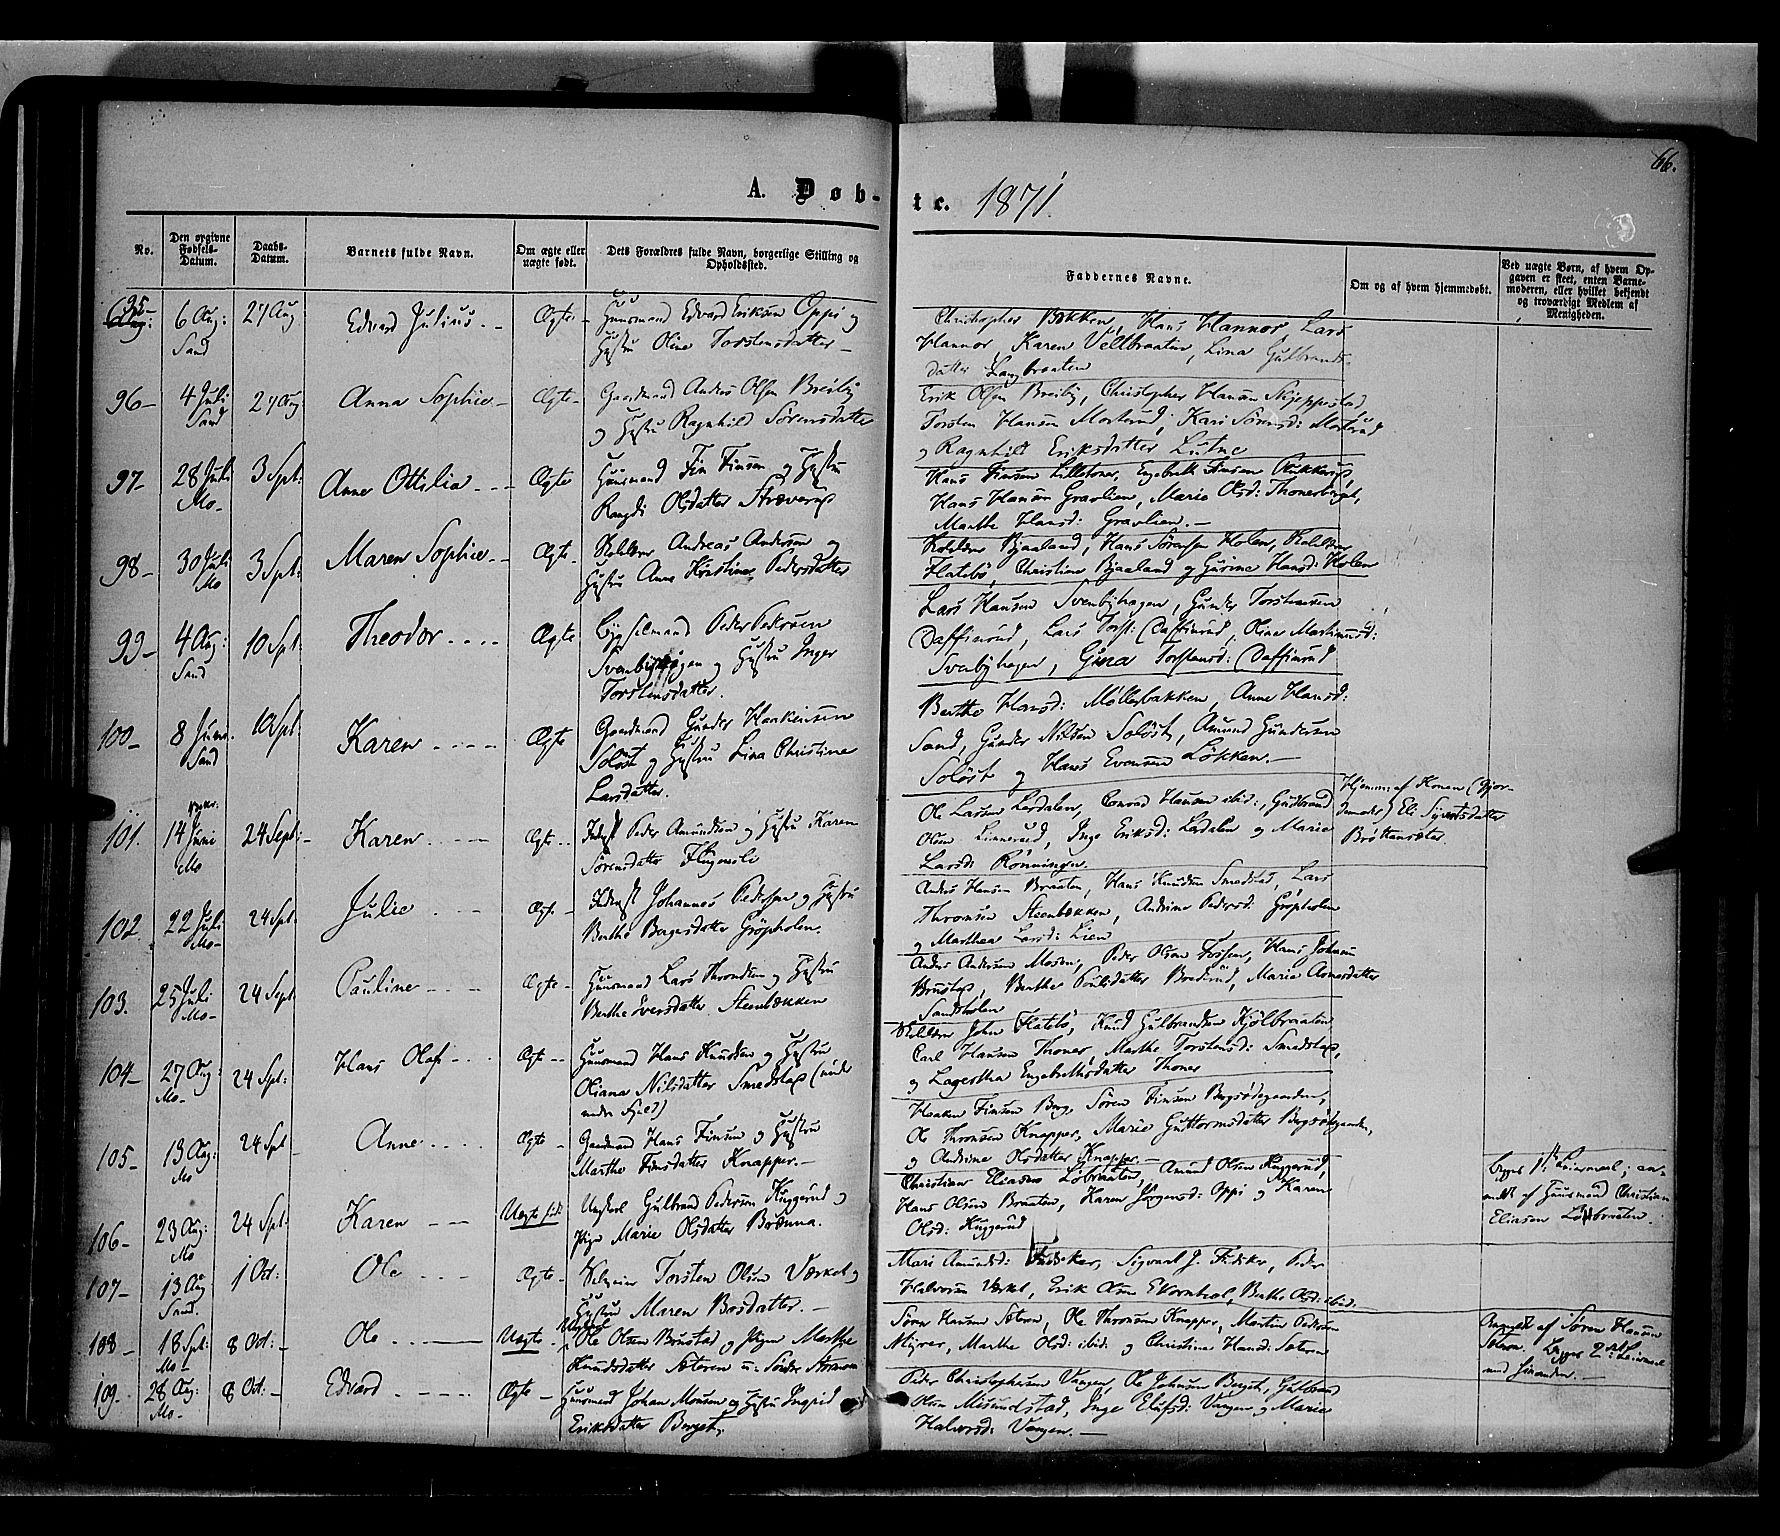 66.
A. Døb-te. 1871
No.
Den opgivne Fødsels-Datum.
Daabs-Datum.
Barnets fulde Navn.
Om ægte eller uægte født.
Dets Forældres fulde Navn, borgerlige Stilling og Opholdssted.
Faddernes Navne.
Om og af hvem hjemmedøbt.
Ved uægte Børn, af hvem Opgaven er skeet, enten Barnemoderen, eller hvilket bekjendt og troværdigt Medlem af Menigheden.
95- 6 Aug: Sand 27 Aug Edvard Julius Ægte Huusmand Edvard Eriksen Oppi og
Hustru Oline Torstensdatter
Christopher Bakken, Hans Hannor Lars
Hannor, Karen Veltbraaten, Lina Gulbrands-
datter Langbraaten
96- 4 Juli Sand 27 Aug Anna Sophie Ægte Gaardmand Anders Olsen Breiby
og Hustru Ragnhild Sørensdatter
Erik Olsen Breiby, Christopher Hansen Skjeppestad
Torsten Hansen Morterud, Kari Sørensd: Morterud
og Ragnhild Eriksdatter Lutne
97- 28 Juli Mo- 3 Spt: Anne Ottilia Ægte Huusmand Fin Finsen og Hustru
Rangdi Olsdatter
Hans Finsen Lilletoner, Engebret Finsen
Hans Hansen Gravlien, Marie Olsd: Thonerberget,
Marthe Hansd: Gravlien.
98- 30 Juli Mo 3 Spt: Maren Sophie Ægte Andreas Andersen og
Hustru Anne Kristine Pedersdatter
Bjaaland, Hans Sørensen Holen,
Flatebö, Christine Bjaaland og Gurine Hansd: Holen
99- 4 Aug: Sand 10 Spt Theodor Ægte Bygselmand Peder Pedersen
Svenbyhagen og Hustru Inger
Torstensdatter.
Lars Hansen Svenbyhagen, Gunder Torstensen
Daffinrud, Lars Torst: Daffinrud, Oline Martinusd:
Svenbyhagen, Gina Torstensd: Daffinrud
100- 8 Juni Sand 10 Spt: Karen Ægte Gaardmand Gunder Haakensen
Soløst og Hustru Lina Christine
Larsdatter.
Berthe Hansd: Møllerbakken, Anne Hansd:
Sand, Gunder Nilsen Soløst, Amund Gundersen
Soløst og Hans Evensen Løkken.
101. 14 Juni Mo 24 Sept: Karen Ægte Inderst Peder Amundsen og Hustru Karen
Sørensdatter Flugumoli
Ole Larsen Lerdalen, Conrad Hansen ibid:, Gudbrand
Olsen Linnerud, Inge Eriksd: Lerdalen og Marie
Larsd: Rønningen
Hjemme af Konen (Gjor-
demoder) Eli Syverstdatter
Brøttensæter.
102. 22 Juli Mo- 24 Spt: Julie Ægte Inderst Johannes Pedersen og Hustru
Berthe Borgersdatter Gröpholen.
Anders Hansen Braaten, Hans Knudsen Smedstad, Lars
Thronsen Steenbækken, Andrine Pedersd: Gröpholen
og Marthea Larsd: Lien
103. 25 Juli Mo- 24 Sept Pauline Ægte Huusmand Lars Throndsen og Hustru
Berthe Iversdatter Steenbækken
Anders Andersen Mosen, Peder Olsen Fossen, Hans Johnsen
Brustad, Berthe Poulsdatter Brodrud, Marie Arnesdatter
Sandholen
104- 27 Aug: Mo- 24 Spt: Hans Olaf Ægte Huusmand Hans Knudsen og Hustru
Oliana Nilsdatter Smedstad (nu
Skolelærer John Flatebö, Knud Gulbrandsen Kjølbraaten
Carl Hansen Thoner, Marthe Torstensd: Smedstad,
og Lagertha Engebretsdatter Thoner
105- 13 Aug: Mo 24 Spt Anne Ægte Gaardmand Hans Finsen og Hustru
Marthe Finsdatter Knapper.
Haaken Finsen Berg, Søren Finsen Bergsødegaarden,
Ole Thronsen Knapper, Marie Guttormsdatter Bergsødegaarden,
og Andrine Olsdatter Knapper
106- 23 Aug: Mo 24 Spt: Karen Uægte født Ungkarl Gulbrand Pedersen Kuggerud og
Pige Marie Olsdatter Brænna.
Christian Eliasen Løbraaten, Amund Olsen Kuggerud,
Hans Olsen Braaten, Karen Jørgensd: Oppi og Karen
Olsd: Kuggerud
begges 1ste Leiermaal; an-
meldt af Huusmand Christian
Eliasen Løbraaten.
107- 13 Aug Sand. 1 Oct: Ole Ægte Selveier Torsten Olsen Værket og
Hustru Maren Larsdatter.
Mari Amundsd: Fideker, Sigvart J. Fideker, Peder
Halvorsen Værket, Erik Olsen Ekornhol, Berthe Olsd: ibid:
108- 18 Spt: Mo- 8 Oct: Ole Uægte Ungkarl Ole Olsen Brustad og Pigen Marthe
Knudsdatter Sæteren
Søren Hansen Sæteren, Ole Thronsen Knapper, Martin Pedersen
Myrer, Marthe Olsd: ibid: og Christine Hansd: Sæteren
Anmeldt af Søren Hansen
Sæteren. Begges 2det Leiermaal
med hinanden.
109. 28 Aug: Mo- 8 Oct: Edvard Ægte Huusmand Johan Monsen og Hustru Ingrid
Eriksdatter Berget.
Peder Christophersen Vangen, Ole Johnsen Berget, Gulbrand
Olsen Misundstad, Inge Elefsd: Vangen og Marie
Halvorsd: Vangen.